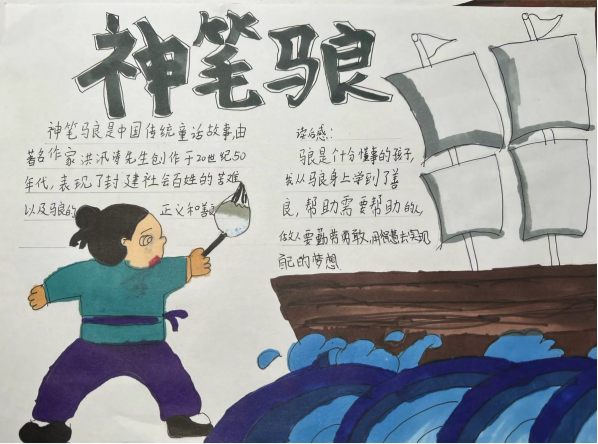 神笔马良
神笔马良是中国传统童话故事,由
著名作家洪汛涛先生创作于20世纪50
年代,表现了封建社会百姓的苦难
以及马良的 正义和善
读后感:
马良是个十分懂事的孩子,
我从马良身上学到了善
良,帮助需要帮助的人
做人要勤劳勇敢,用智慧去实现
自己的梦想